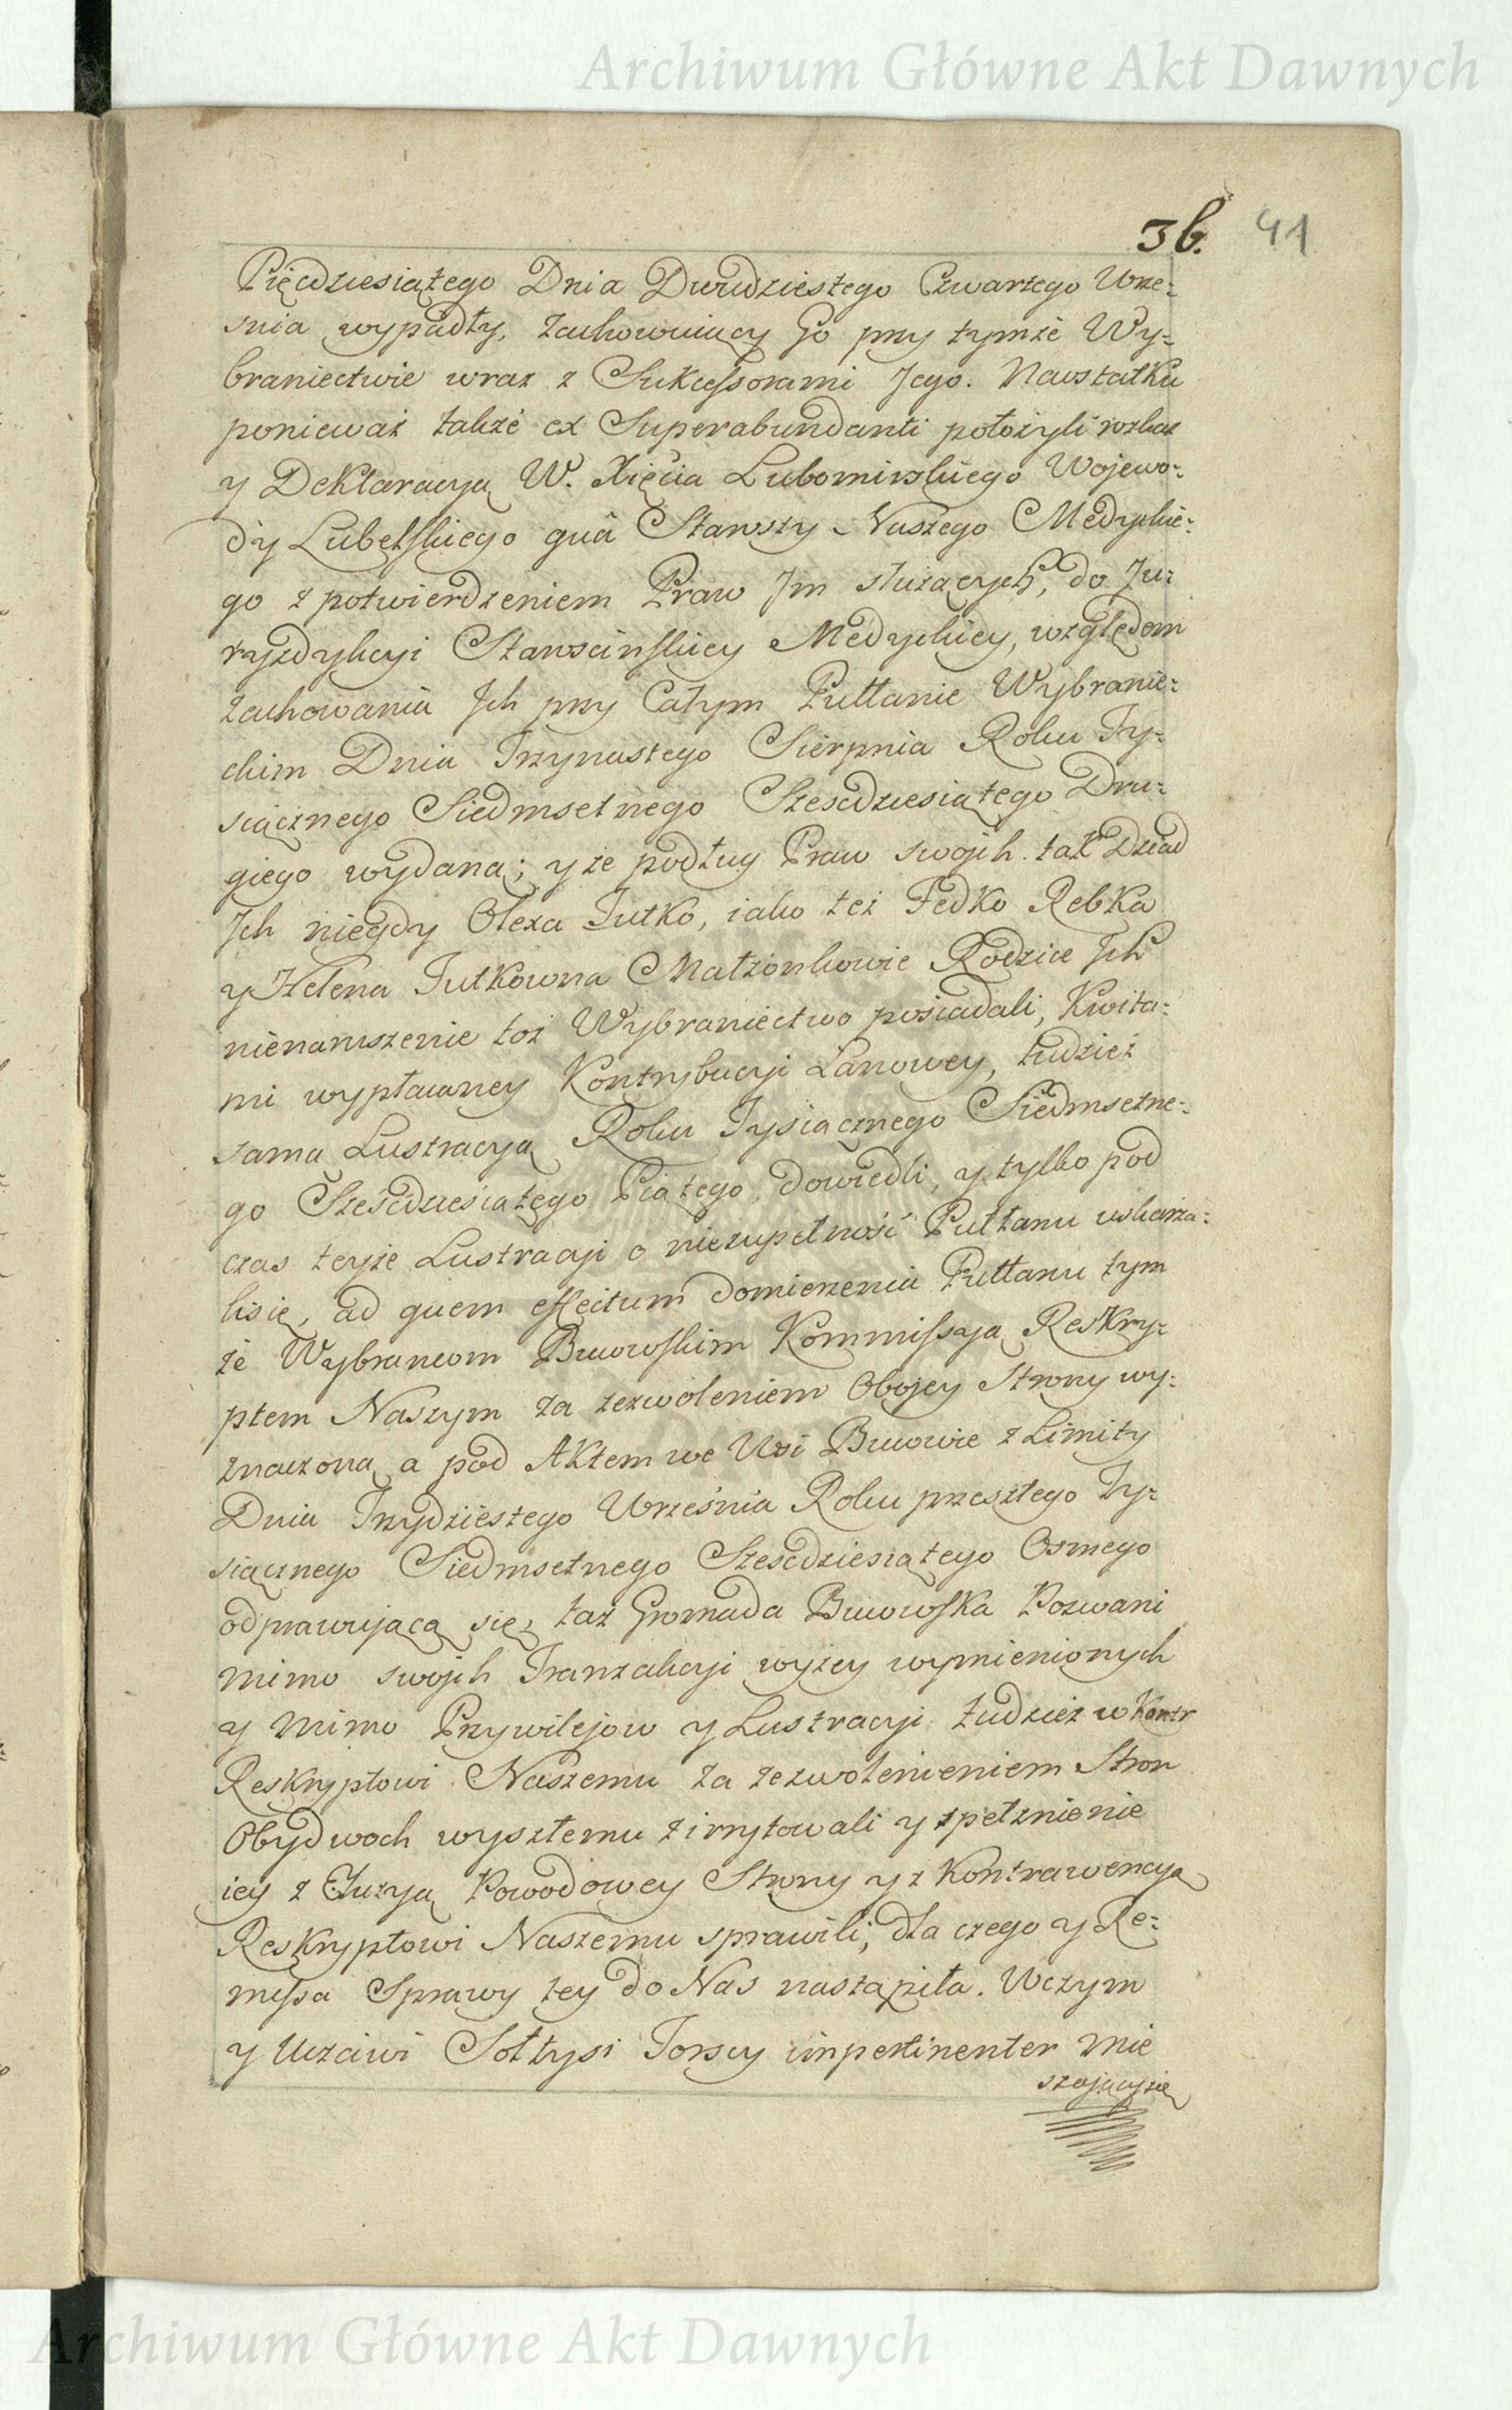 Archiwum Główne Akt Dawnych
36. 41
Pięcdziesiątego Dnia Dwudziestego Czwartego Wrze=
snia wypadły, zachowuiący Go przy tymże Wy=
braniectwie wraz z Sukcessorami Jego. Naostatku
ponieważ także ex Superabundanti położyli rozkaz
y Deklaracyą W. Xięcia Lubomirskiego Wojewo=
dy Lubelskiego quà Starosty Naszego Medyckie=
go z potwierdzeniem Praw Jm służących, do Ju=
ryzdykcyi Starościnskiey Medyckiey, względem
zachowania Jch przy Całym Pułłanie Wybranie=
ckim Dnia Trzynastego Sierpnia Roku Ty=
siącznego Siedmsetnego Szescdziesiątego Dru=
giego wydaną; y że podług Praw swojch tak Dziad
Jch niegdy Olexa Jutko, iako też Fedko Rebka
y Helena Jutkowna Małżonkowie Rodzice Jch
nienaruszenie toż Wybraniectwo posiadali, Kwita=
mi wypłaconey Kontrybucyi Łanowey, tudzież
samą Lustracyą Roku Tysiącznego Siedmsetne=
go Sześcdziesiątego Piątego dowiedli, y tylko pod
czas teyże Lustracyi o niezupełność Pułłanu uskarża=
li się, ad quem effectum domierzenia Pułłanu tym
że Wybrancom Bucowskim Kommissya Reskry=
ptem Naszym za zezwoleniem Obojey Strony wy=
znaczona, a pod Aktem we Wsi Bucowie z Limity
Dnia Trzydziestego Września Roku przeszłego Ty=
siącznego Siedmsetnego Szescdziesiątego Osmego
odprawującą się, taż Gromada Bucowska Pozwani
mimo swojch Tranzakcyi wyżey wymienionych
y mimo Przywilejow y Lustracyi tudzież w Kontr
Reskryptowi Naszemu za zezwolenieniem Stron
Obydwoch wyszłemu zirrytowali y spełznienie
iey z Iluzyą Powodowey Strony y z Kontrawencyą
Reskryptowi Naszemu sprawili, dla czego y Re=
missa Sprawy tey do Nas nastąpiła. Wczym
y Uczciwi Sołtysi Torscy impertinenter mie
szającysię
Archiwum Główne Akt Dawnych